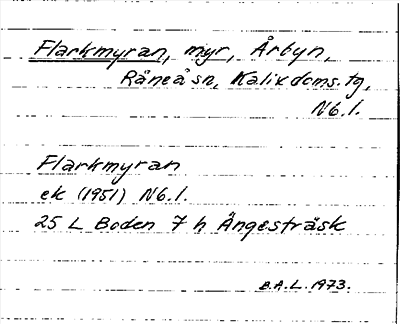 Flarkmyran, myr, Årbyn,
Råneå sn, Kalix doms. tg,
Nb. l.
Flarkmyran
ek (1951) Nb. l.
25 L Boden 7 h Ängesträsk
B.A.L. 1973.